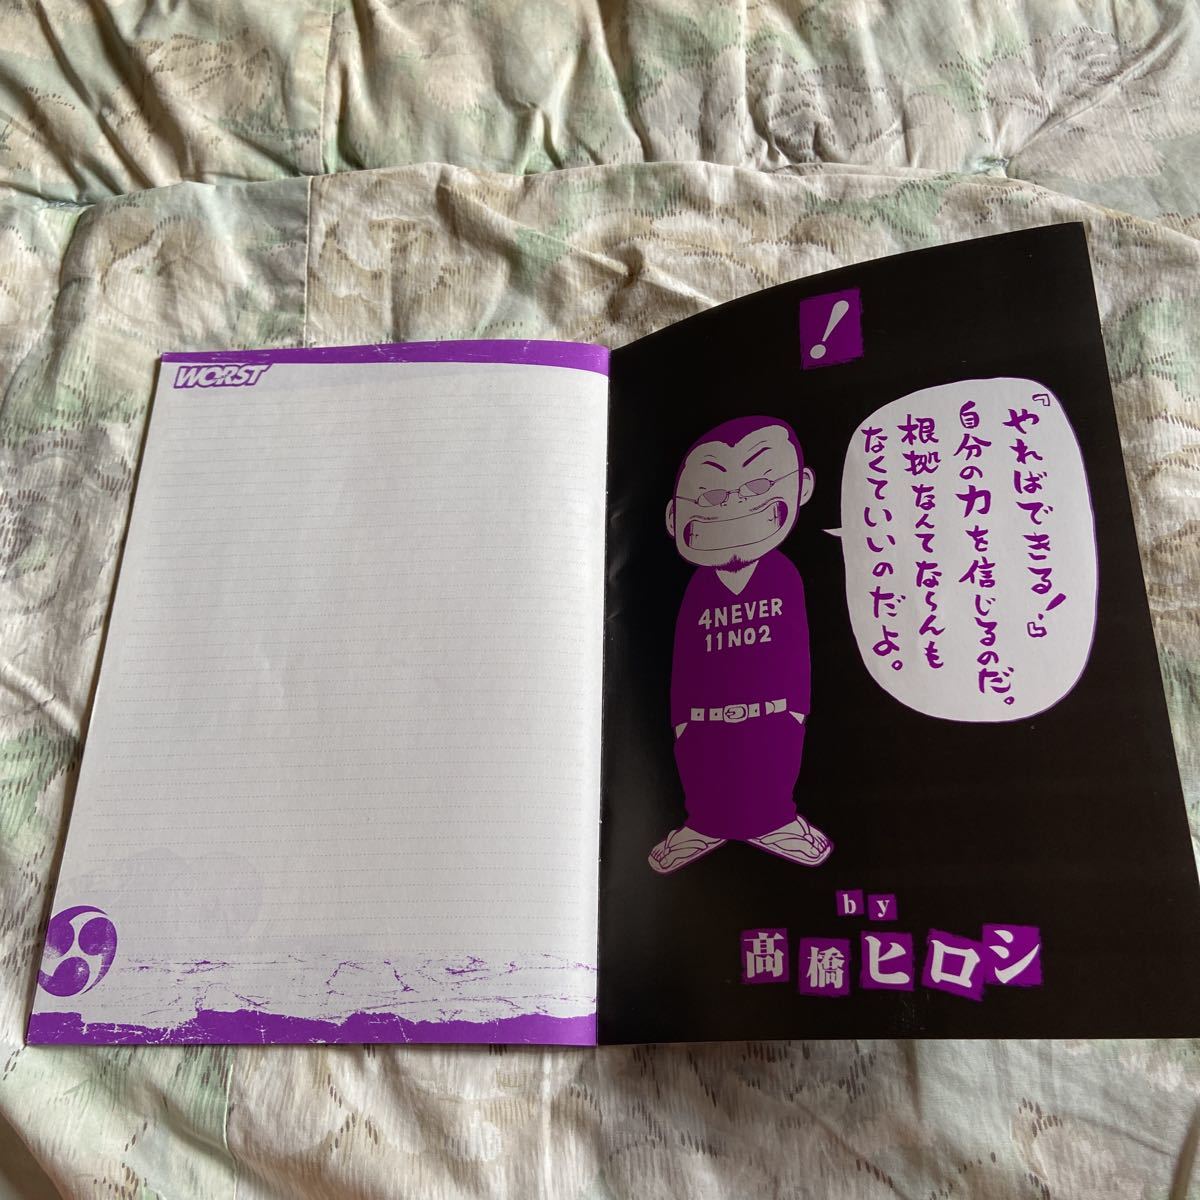 WORST
!
『やればできる!』
自分の力を信じるのだ。
根拠なんてな〜んも
なくていいのだよ。
4NEVER
11NO2
by
髙橋ヒロシ